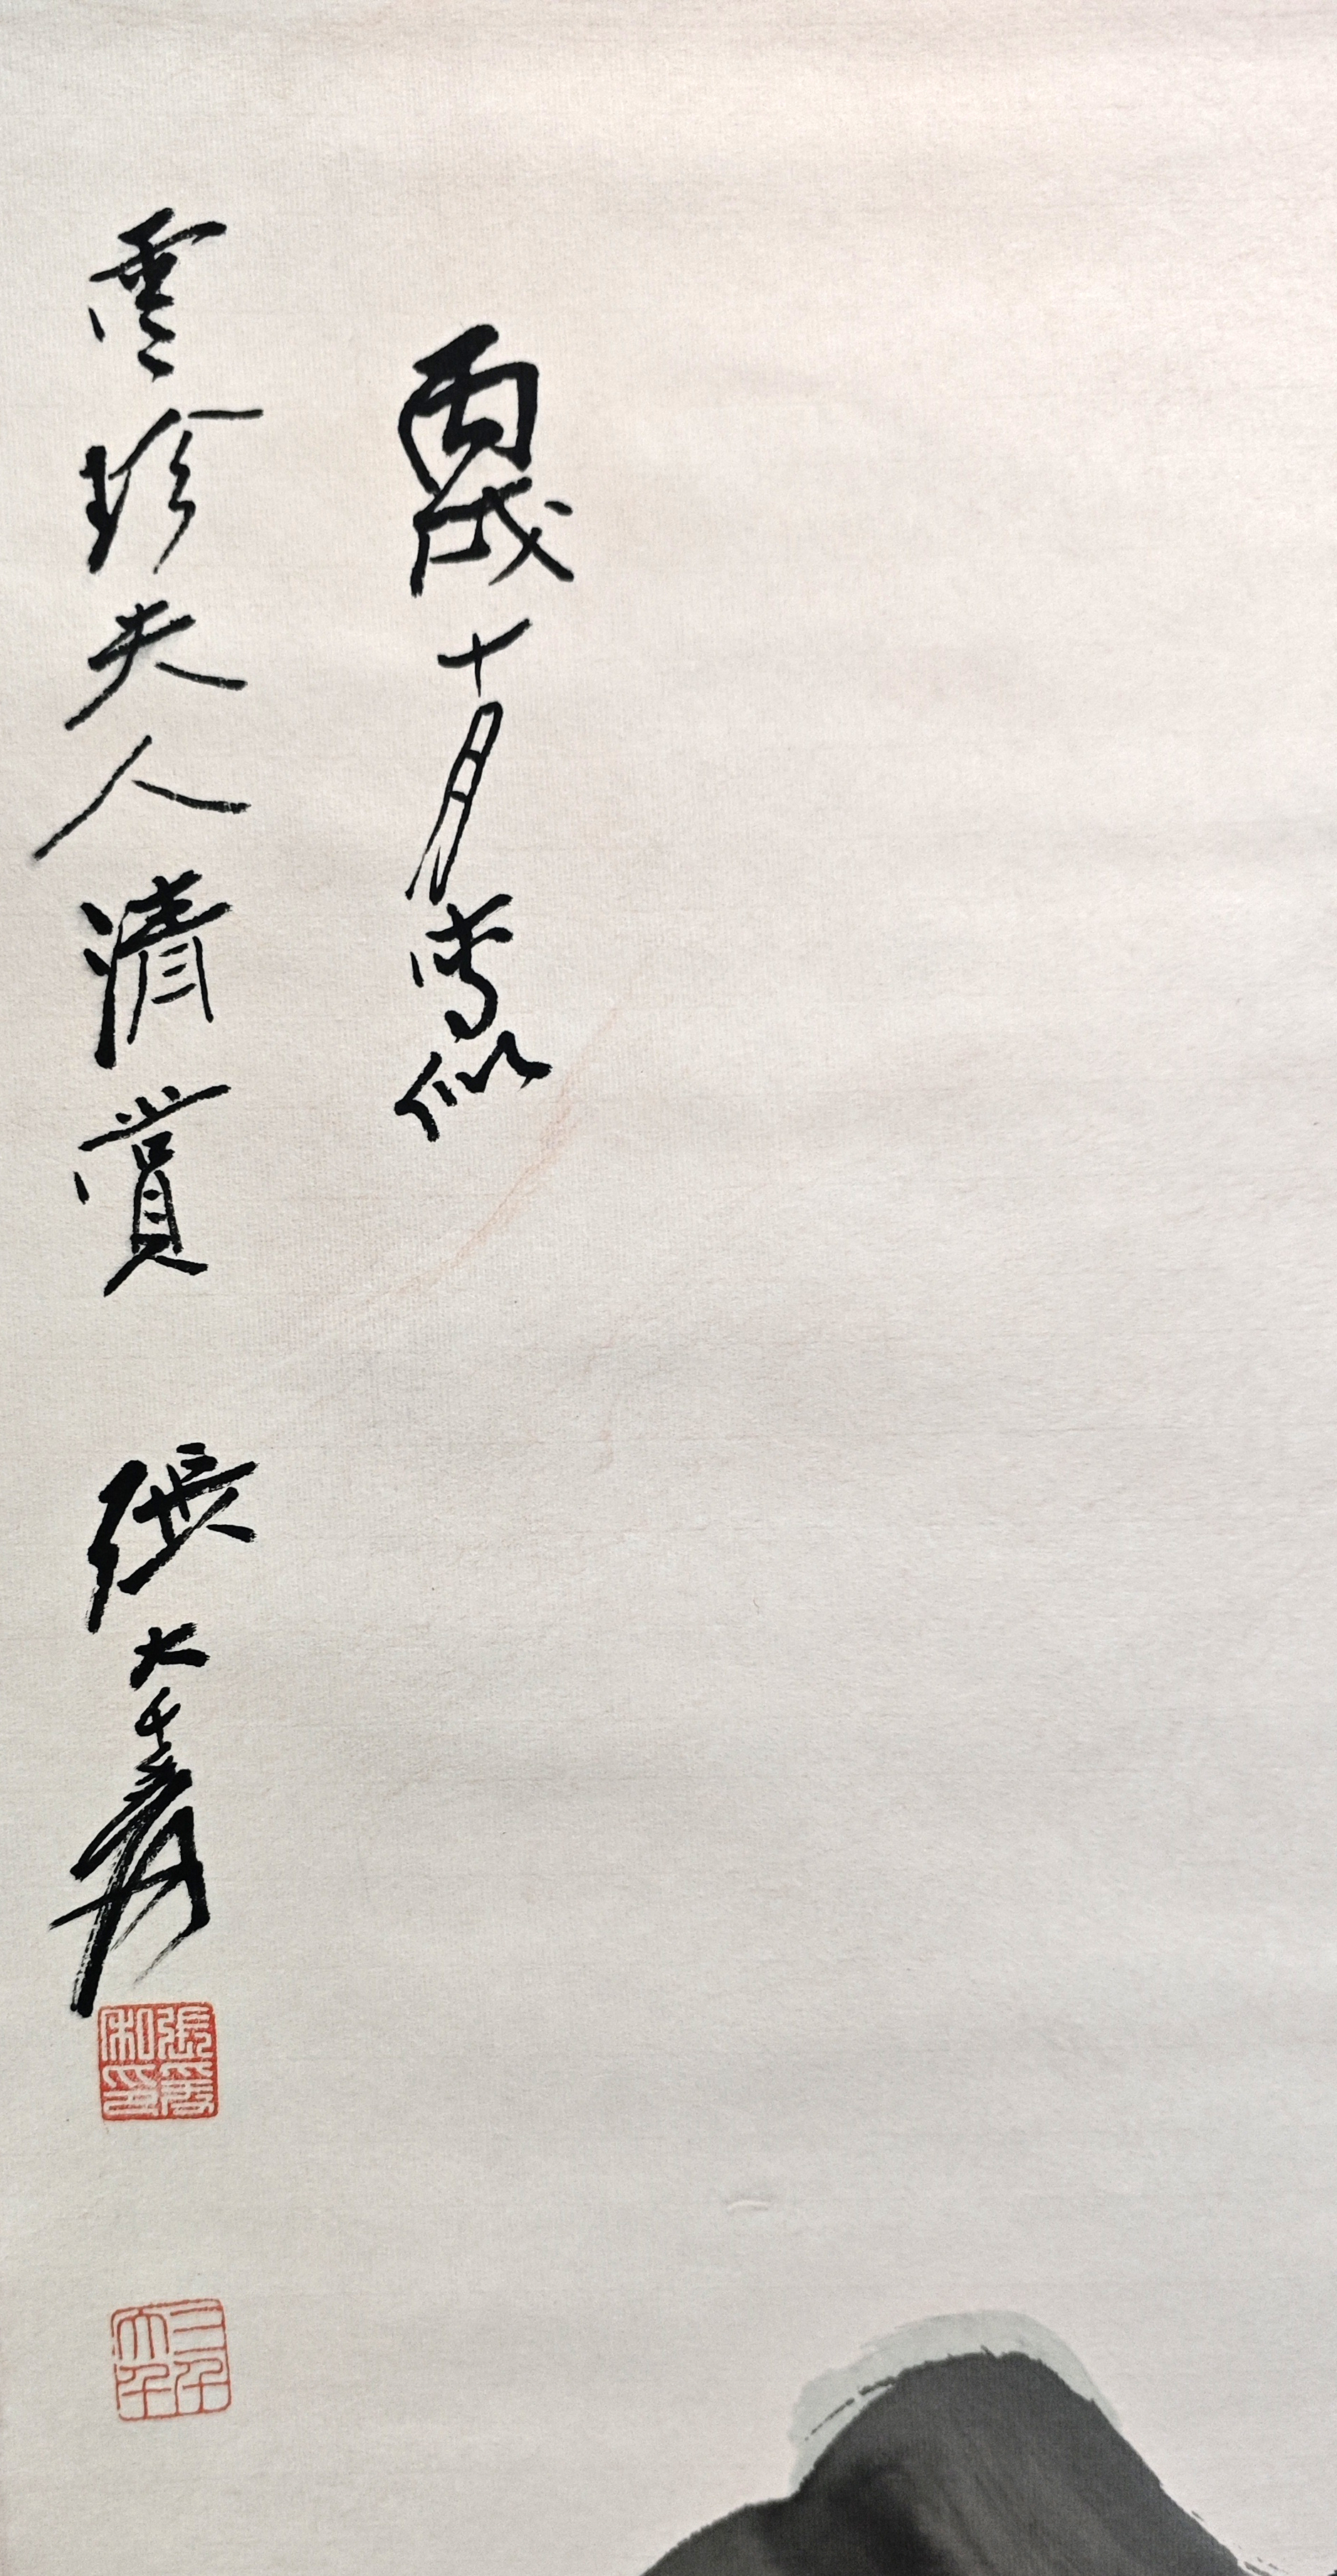 丙戌十月寫似
雲珍夫人清賞 張大千爰
張爰私印
三千大千